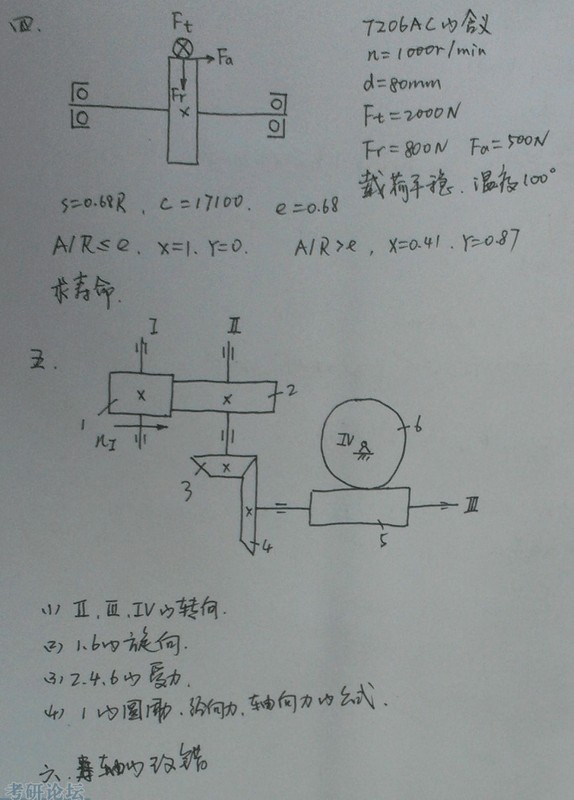 四. Ft 7206AC的含义
Fa n=1000r/min
Fr d=80mm
Ft=2000N
Fr=800N Fa=500N
载荷平稳. 温度100°
S=0.68R. C=17100. e=0.68
A/R≤e. X=1. Y=0. A/R>e, X=0.41. Y=0.87
求寿命.
五. I II
1 nI 2
3 4 IV 6
5 III
(1) II. III. IV的转向.
(2) 1.6的旋向.
(3) 2.4.6的受力.
(4) 1的圆周力.径向力.轴向力的公式.
六. 轴的改错
考研论坛